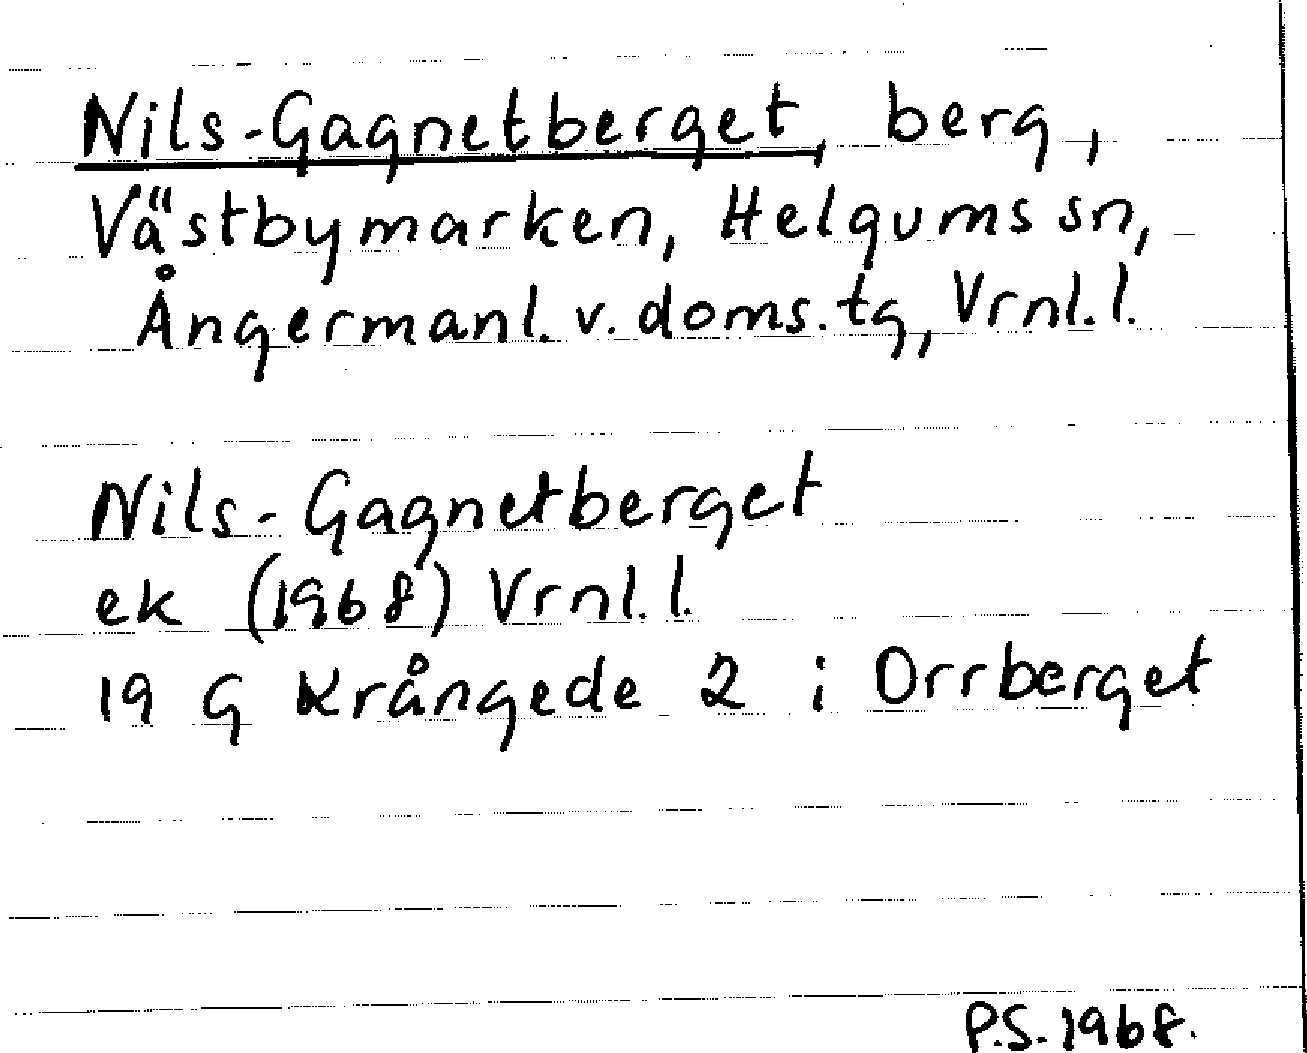 Nils-Gagnetberget, berg,
Västbymarken, Helgums sn,
Ångermanl. v. doms. tg, Vrnl. l.
Nils-Gagnetberget
ek (1968) Vrnl. l.
19 G Krångede 2 i Orrberget
P.S. 1968.